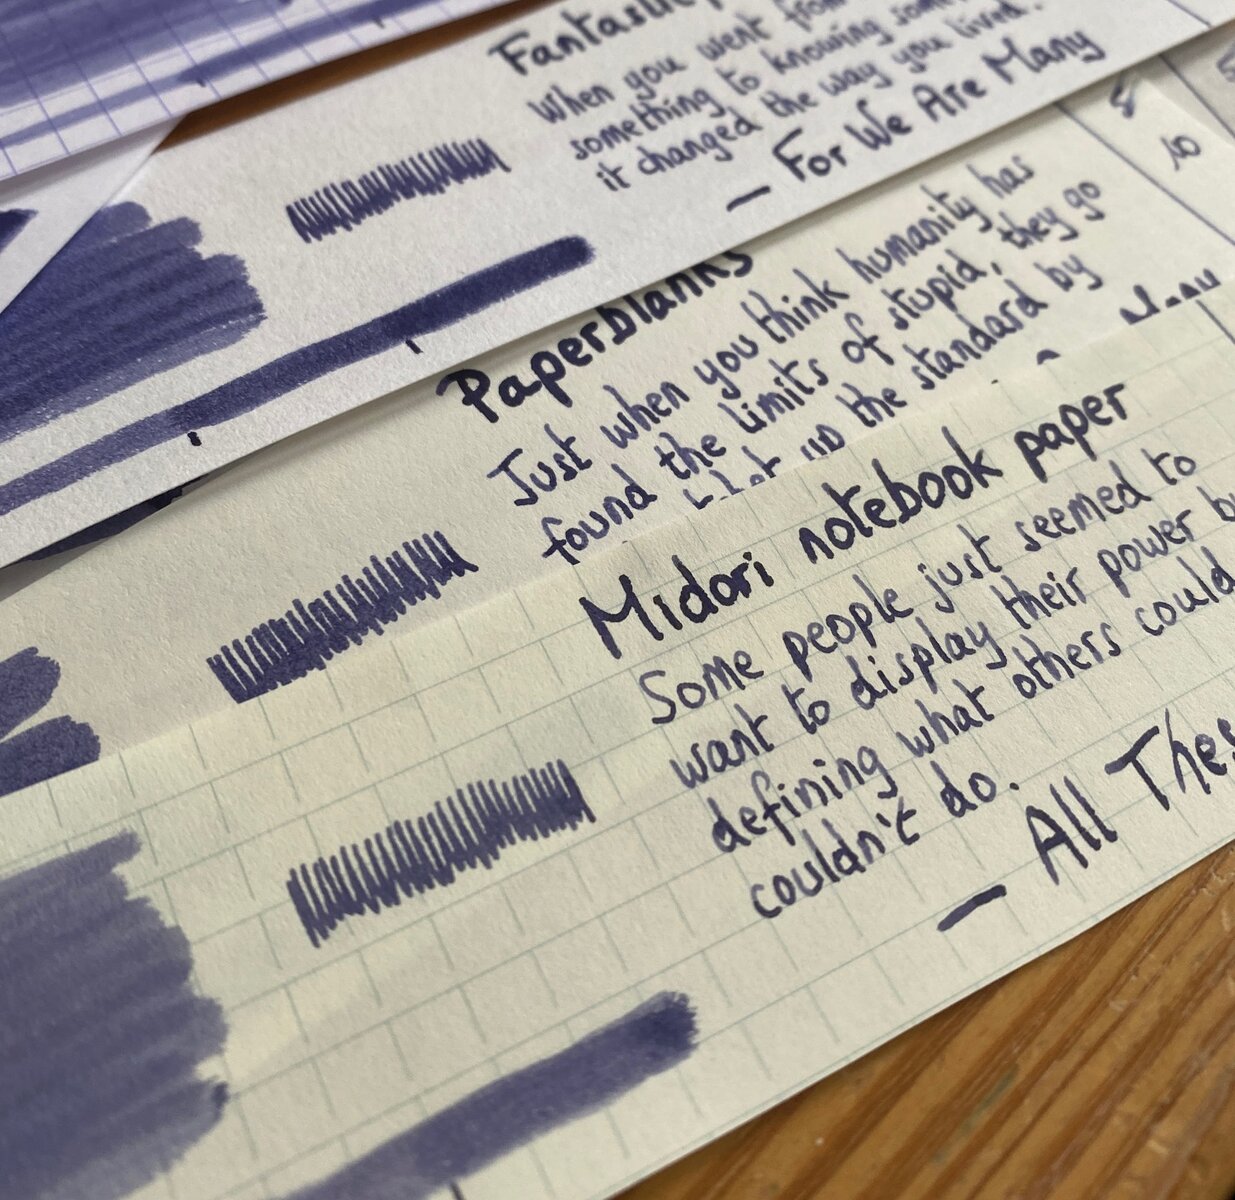 When you went from
something to knowing
it changed the way you lived.
— For We Are Many
8
10
Paperblanks
Just when you think humanity has
found the limits of stupid, they go
up the standard by
Midori notebook paper
Some people just seemed to
want to display their power
defining what others could
couldn't do.
— All